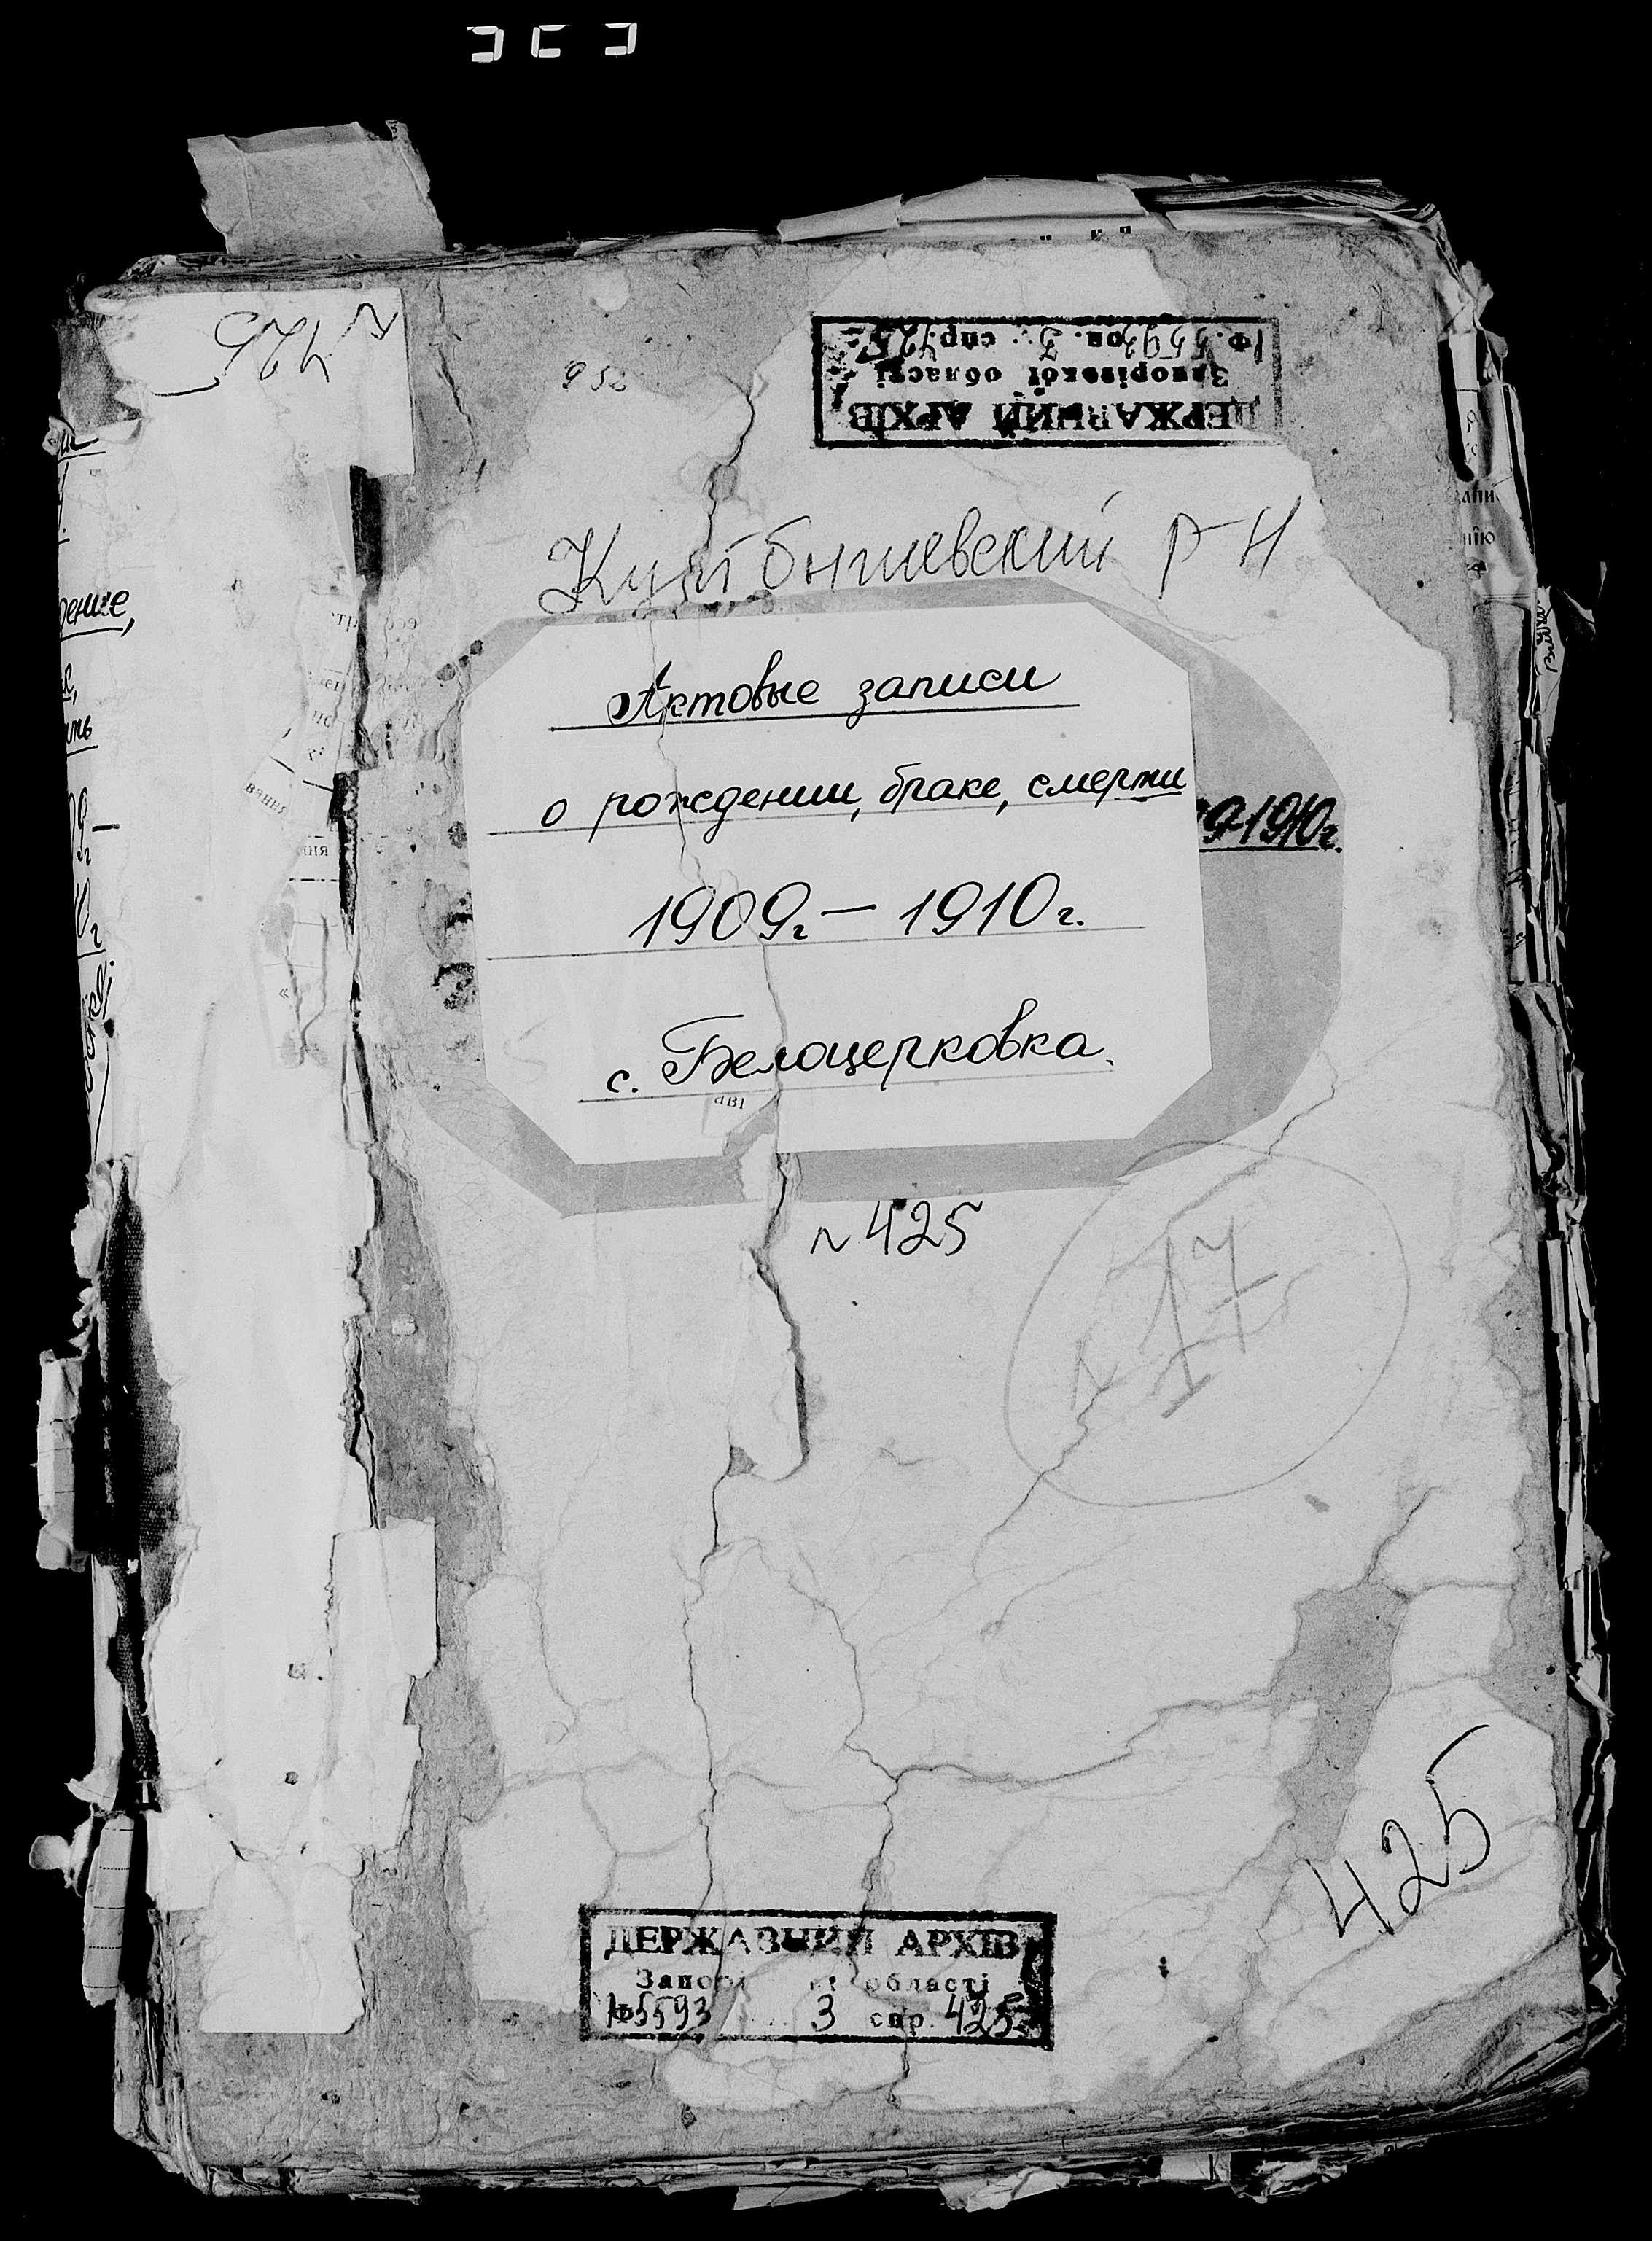 N 425
952
ДЕРЖАВНИЙ АРХІВ
Запорізької області
Ф. 5593 оп. 3 спр. 425
Куйбышевский р-н
Актовые записи
о рождении, браке, смерти
9-1910г.
1909г. – 1910г.
с. Белоцерковка.
аві
N 425
N 17
425
ДЕРЖАВНИЙ АРХІВ
Запорі області
Ф5593 3 спр. 425
дение,
вання
ння